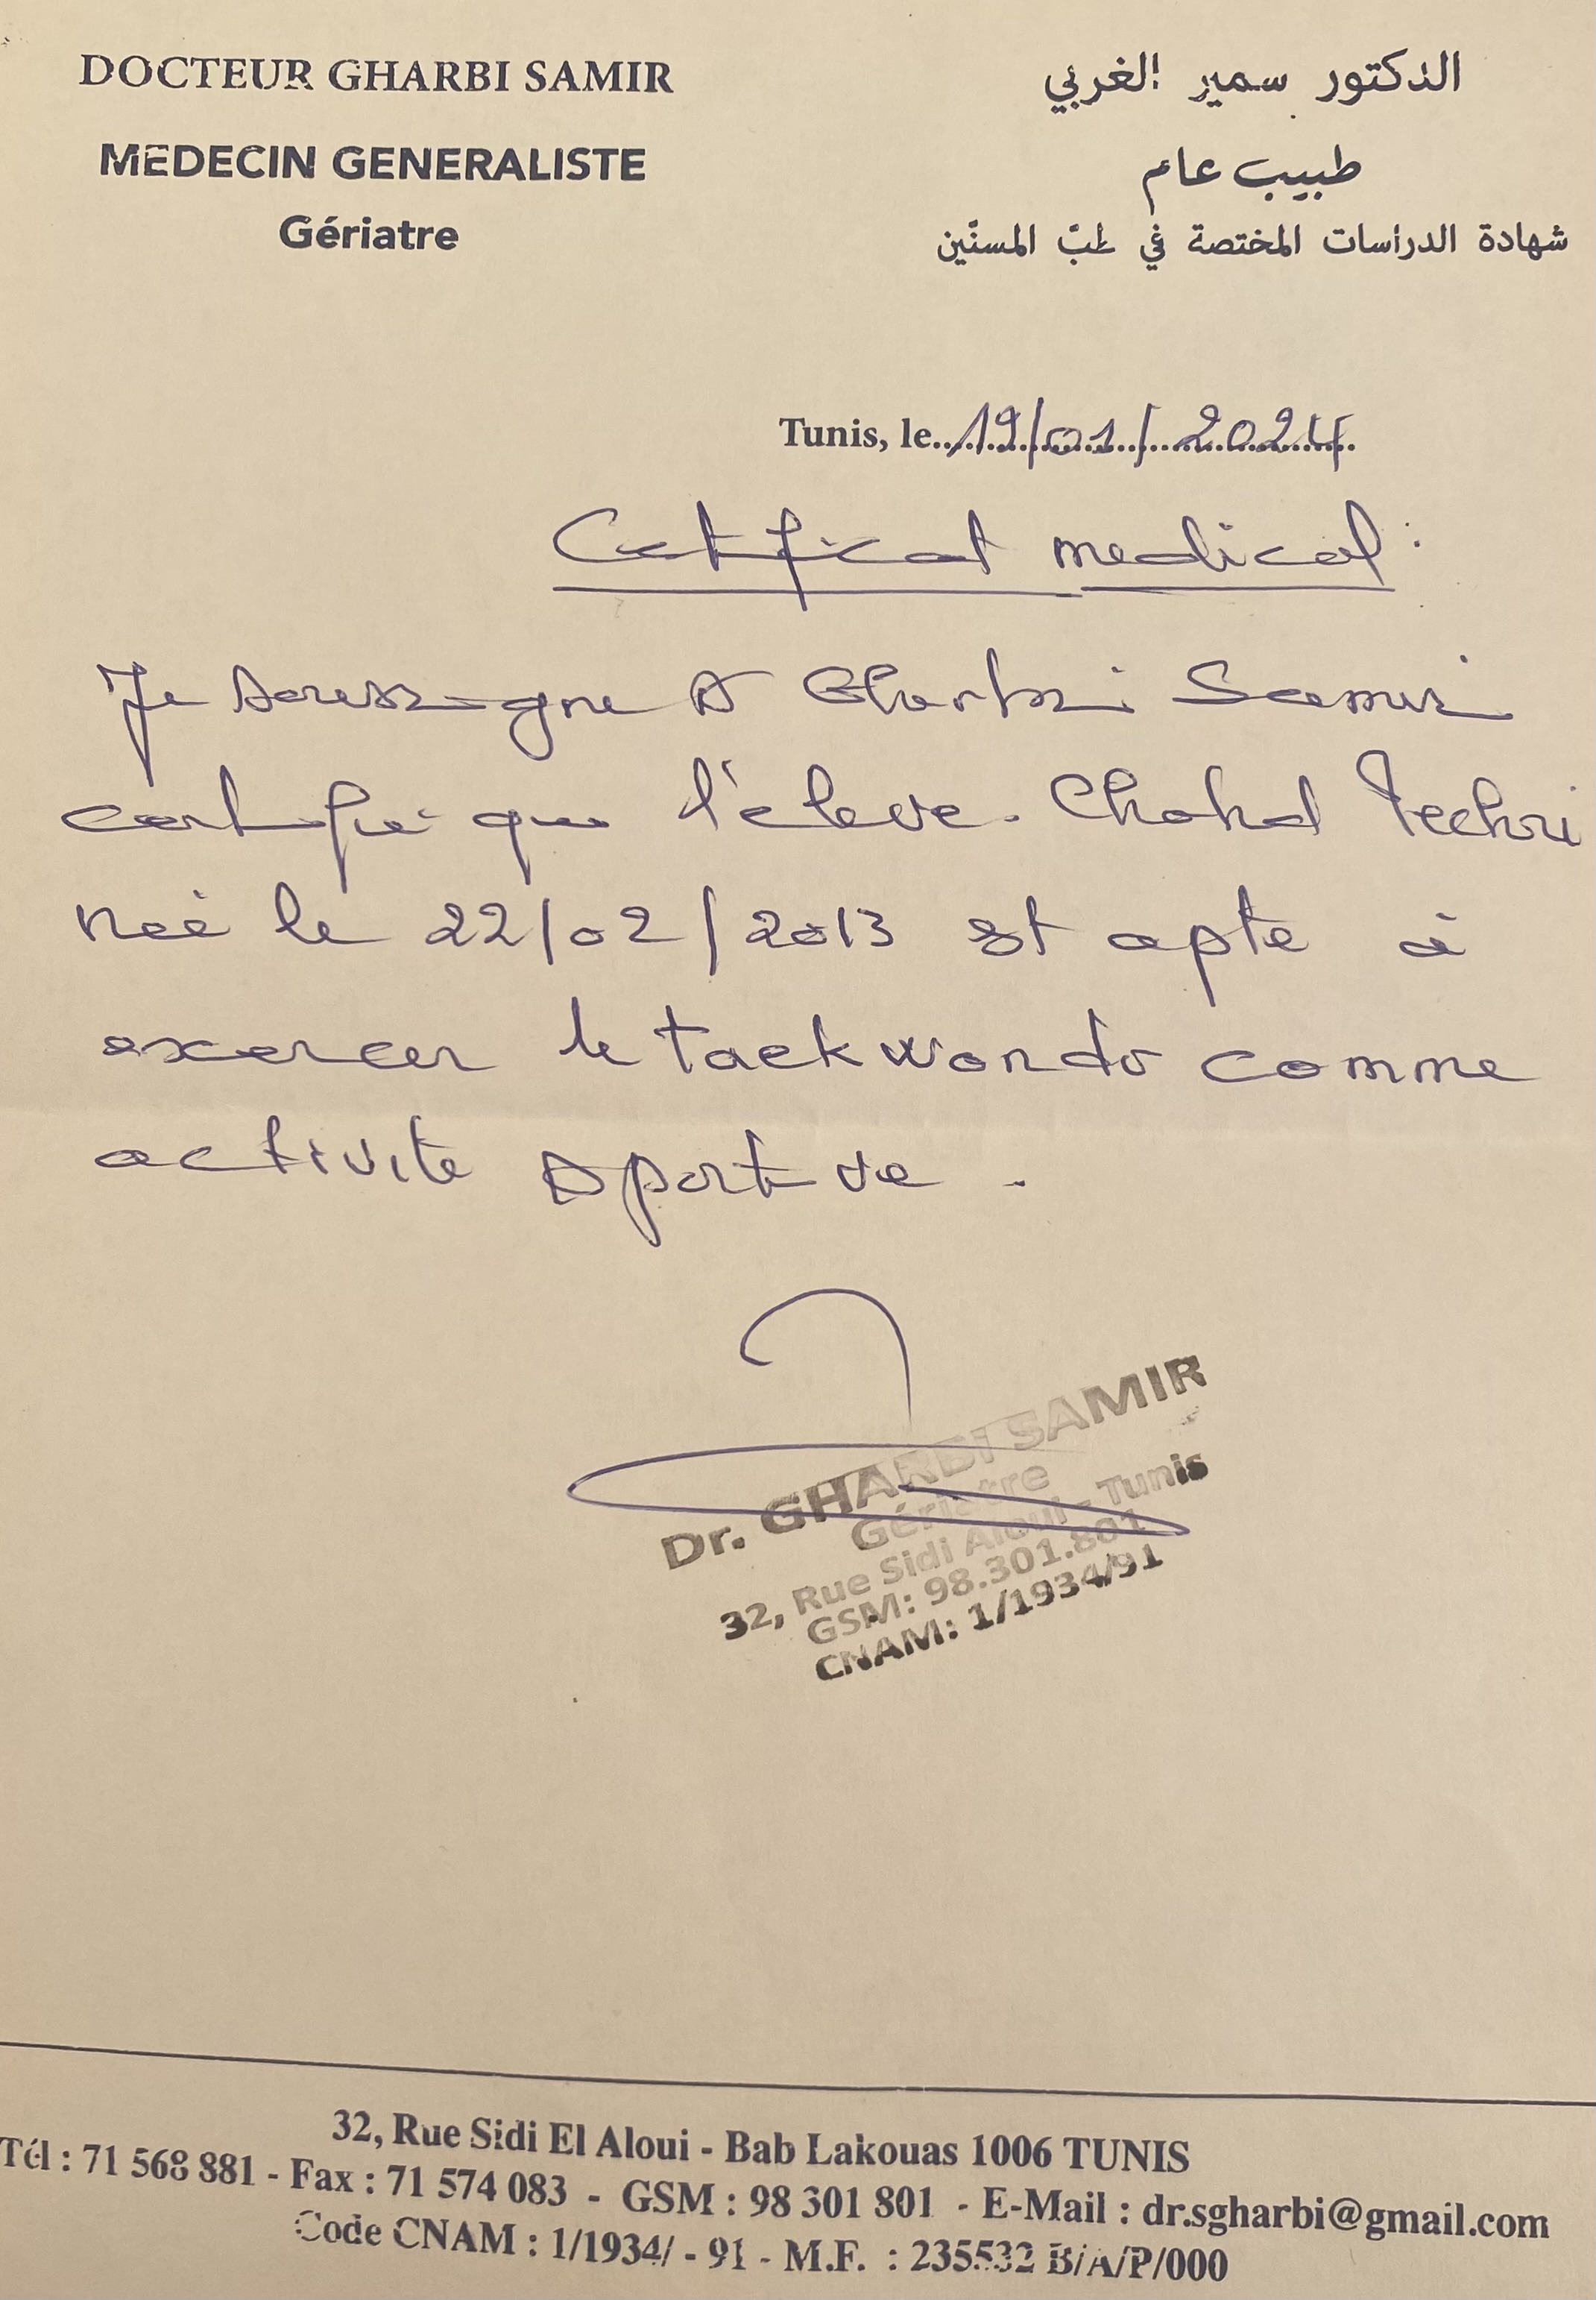 DOCTEUR GHARBI SAMIR
MEDECIN GENERALISTE
Gériatre
الدكتور سمير الغربي
طبيب عام
شهادة الدراسات المختصة في طبّ المسنّين
Tunis, le 19/01/2024
Certificat medical :
Je soussigne Dr Gharbi Samir
certifie que l'eleve. Chahd
née le 22/02/2013 est apte à
exercer le taekwondo comme
activite sportive .
Dr. GHARBI SAMIR
Gériatre
32, Rue Sidi Aloui - Tunis
GSM: 98.301.801
CNAM: 1/1934/91
32, Rue Sidi El Aloui - Bab Lakouas 1006 TUNIS
Tél : 71 568 881 - Fax : 71 574 083 - GSM : 98 301 801 - E-Mail : dr.sgharbi@gmail.com
Code CNAM : 1/1934/ - 91 - M.F. : 235532 B/A/P/000